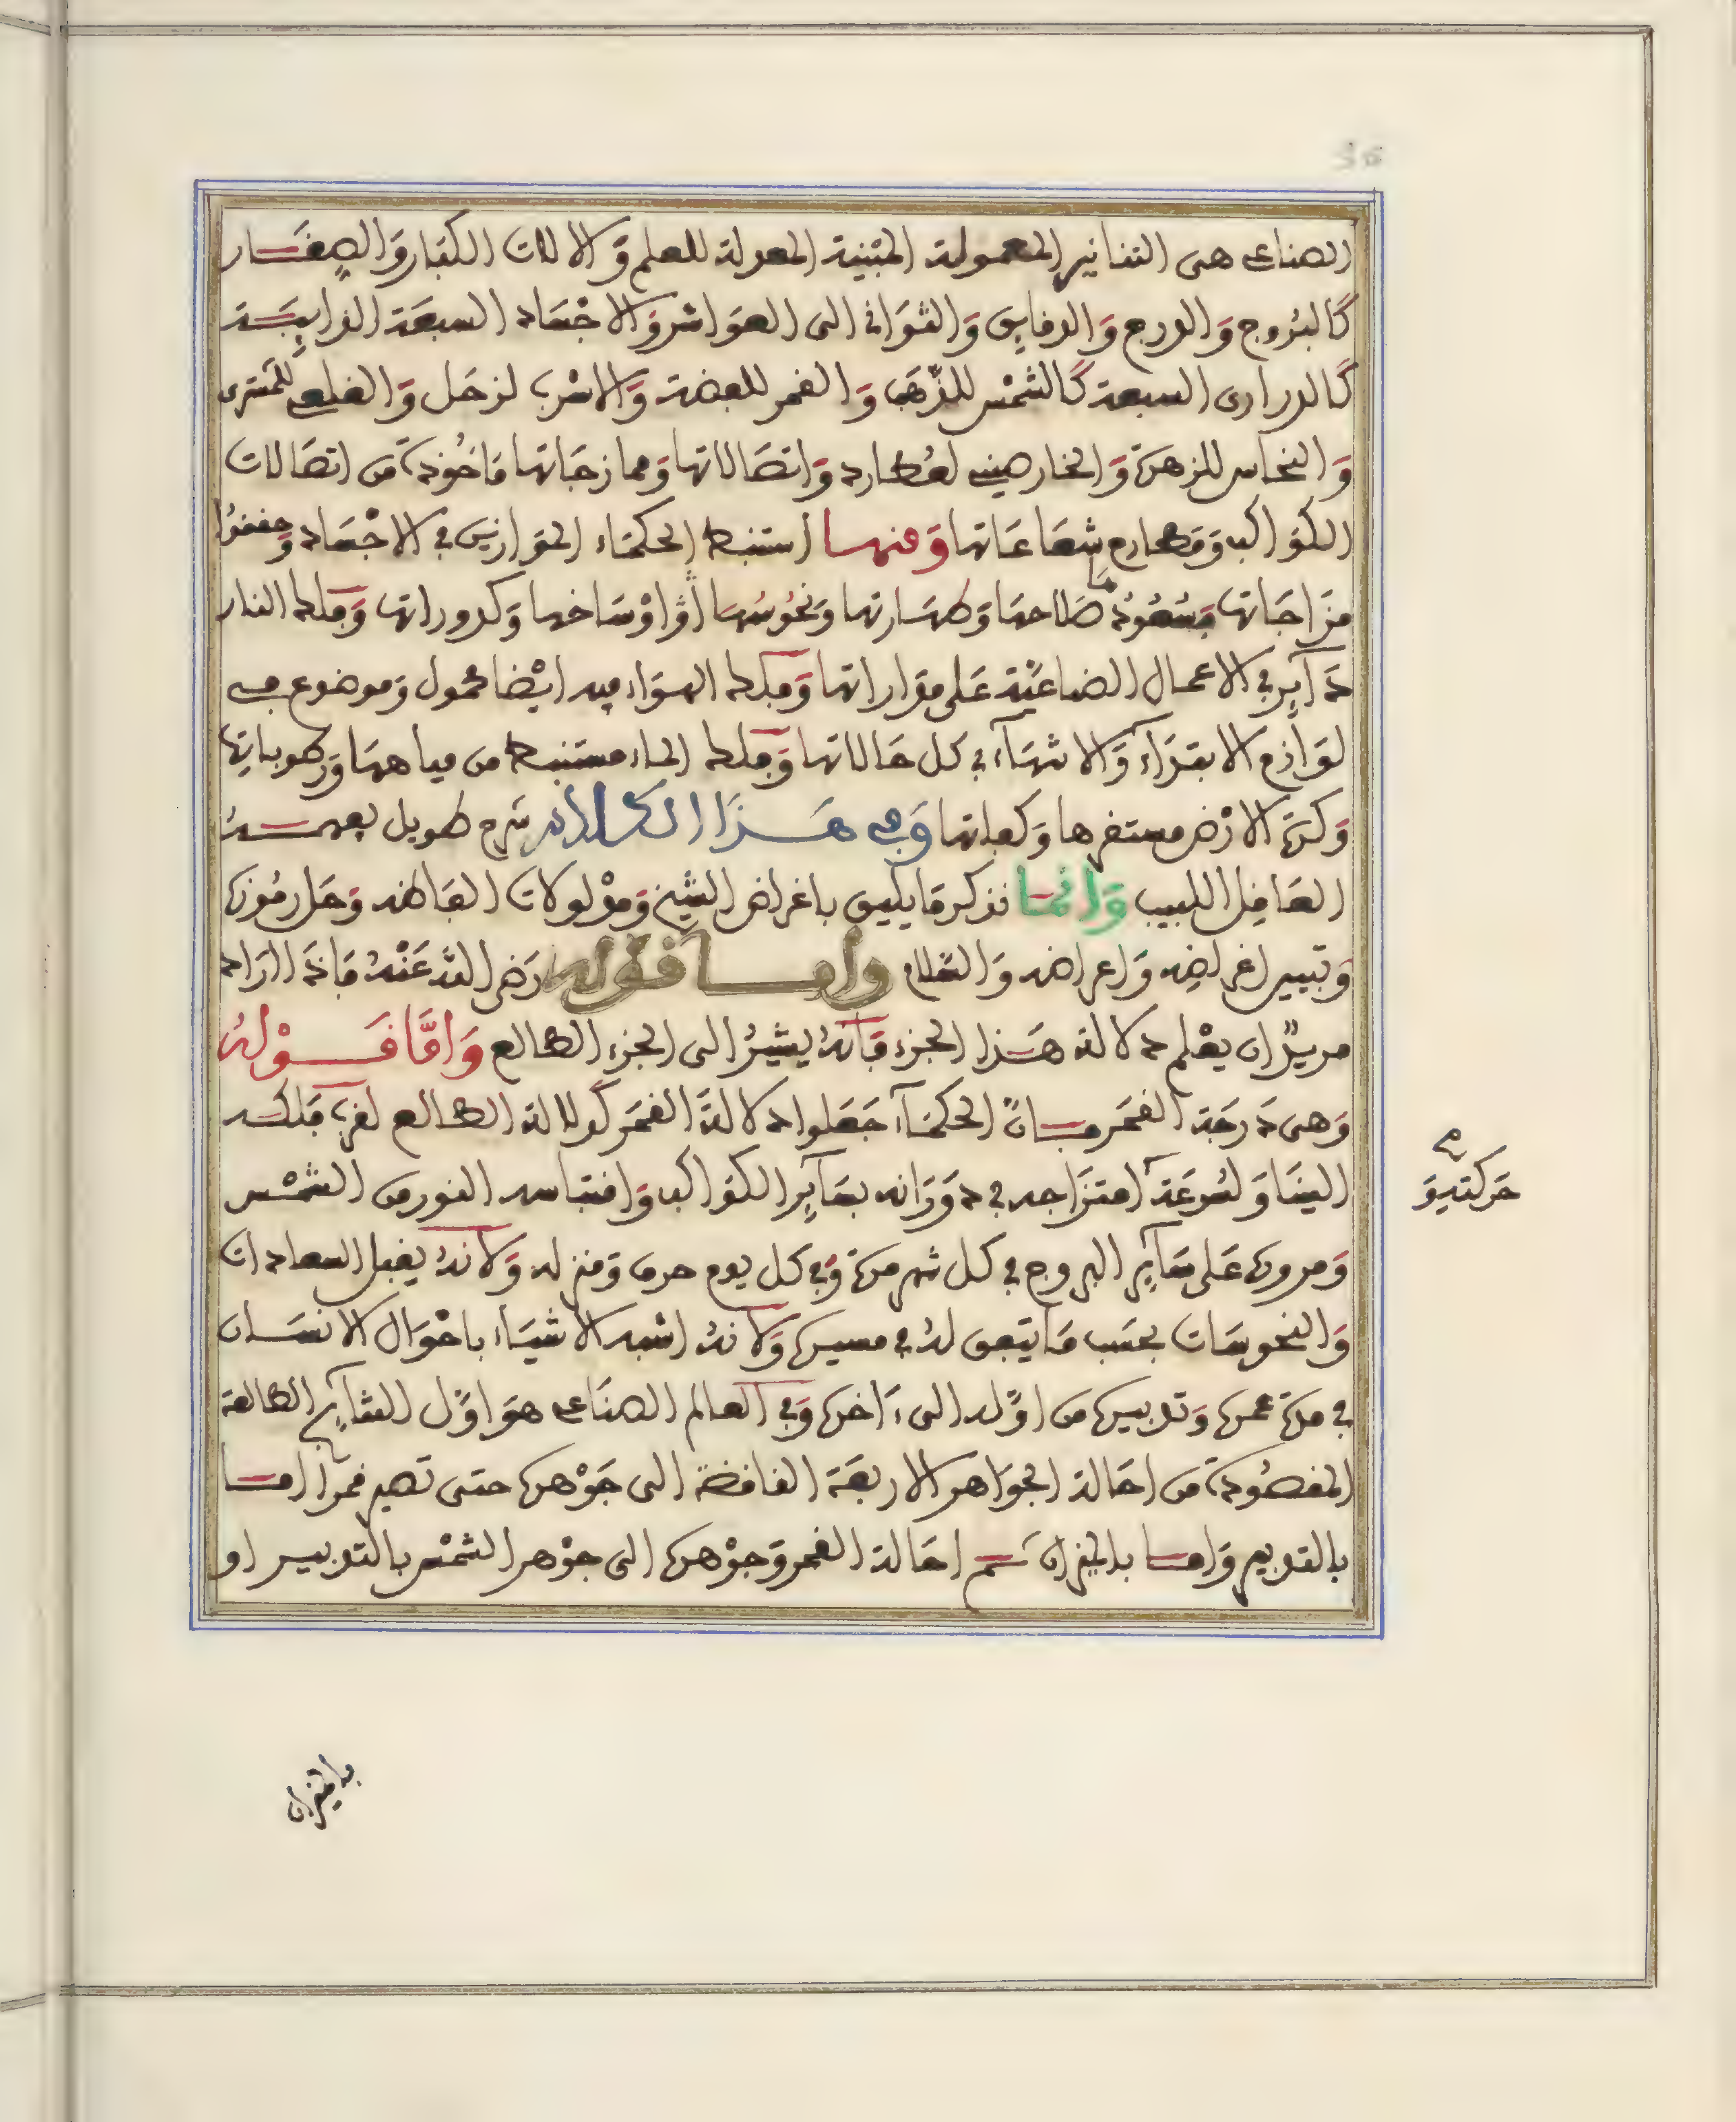 الصناعى هى التنانير المعمولة المبنية المعدلة للعلم وَالالات الكبَار وَالصِغَــار
كَالبُرُوج وَالدرج وَالدقايق وَالثوَانى الى العوَاشر وَالاجْسَاد السبعَة الذايبَـة
كَالدرارى السبعة كَالشمْس للذّهَب وَالقمر للفضة وَالاسْرب لزحَل وَالقلعى للمشترى
وَالنحَاس للزهرة وَالخارصينى لعُطارد وَاتصَالاتها وَممازجَاتها مَاخُوذة من اتصَالات
الكوَاكب وَمَطارح شعَاعَاتها وَمنهـا استنبط الحكمَاء الموَازين فى الاجْسَاد وَحققوُا
مزَاجَاتها وَسُعُودهَا صَلاحهَا وَطهَـارتها وَنحُوسُهَا أوْ اوْسَاخها وَكدوراتها وَفلك النار
دَآير فى الاعمال الصناعيّة عَلى مقداراتها وَفلك الهوَاء فيه ايْضا محمول وَموضوع فى
لوَازم الابتدَاء وَالانتهَآء فى كل حَالاتها وَفلك الماء مستنبط من مياههَا وَرطوباتها
وَكرة الارْض مستقرها وَ وَفى هَــذَا الكلام شرح طويل يفهمــهُ
العَاقل اللبيب وَانمَـا نذكر مَا يليق باغراض الشيخ وَمدْلولات الفَاظه وَحَل رمُوزه
وَتبيين اغراضِه وَاعراضه وَالسَّلام وأمــا قوله رَضى الله عَنْهُ فَاذَا ارَاد
مريدٌ ان يعْلم دلالة هَـذا الجزء فَانهُ يشيرُ الى الجزء الطالع وَامَّا قَــوْلهُ
وَهى دَرجَة القمَر فـانّ الحكمَآ جَعَلوا دلالة القمَر كدلالة الطالع لقرب فلكـه
الينَا وَلسُرعَة امتزَاجه فى دوَرَانه بسَآير الكوَاكب وَاقتبَاسه النور من الشمْس
وَمروره عَلى سَآير البروج فى كل شهر مرة وَفى كل يوم حرف وَمنزله وَلانهُ يقبل السعادات
وَالنحوسَات بحسَب مَا يتفق لهُ فى مسيره وَلانهُ اشبه الاشيَاء باحْوَال الانسَـان
فى مدة عمره وَتدبيره من اوّله الى ءَاخره وَفى العالم الصنَاعى هوَ اوّل النتَآيج الطالعة
المقصُودة من احَالة الجوَاهر الاربعَة الناقصة الى جَوْهره حتى تصير قمرا امـا
بالتدبير وَامـا بالميزان ثـم احَالة القمر وَجوْهره الى جوْهر الشمْس بالتدبيـر او
بالميزان